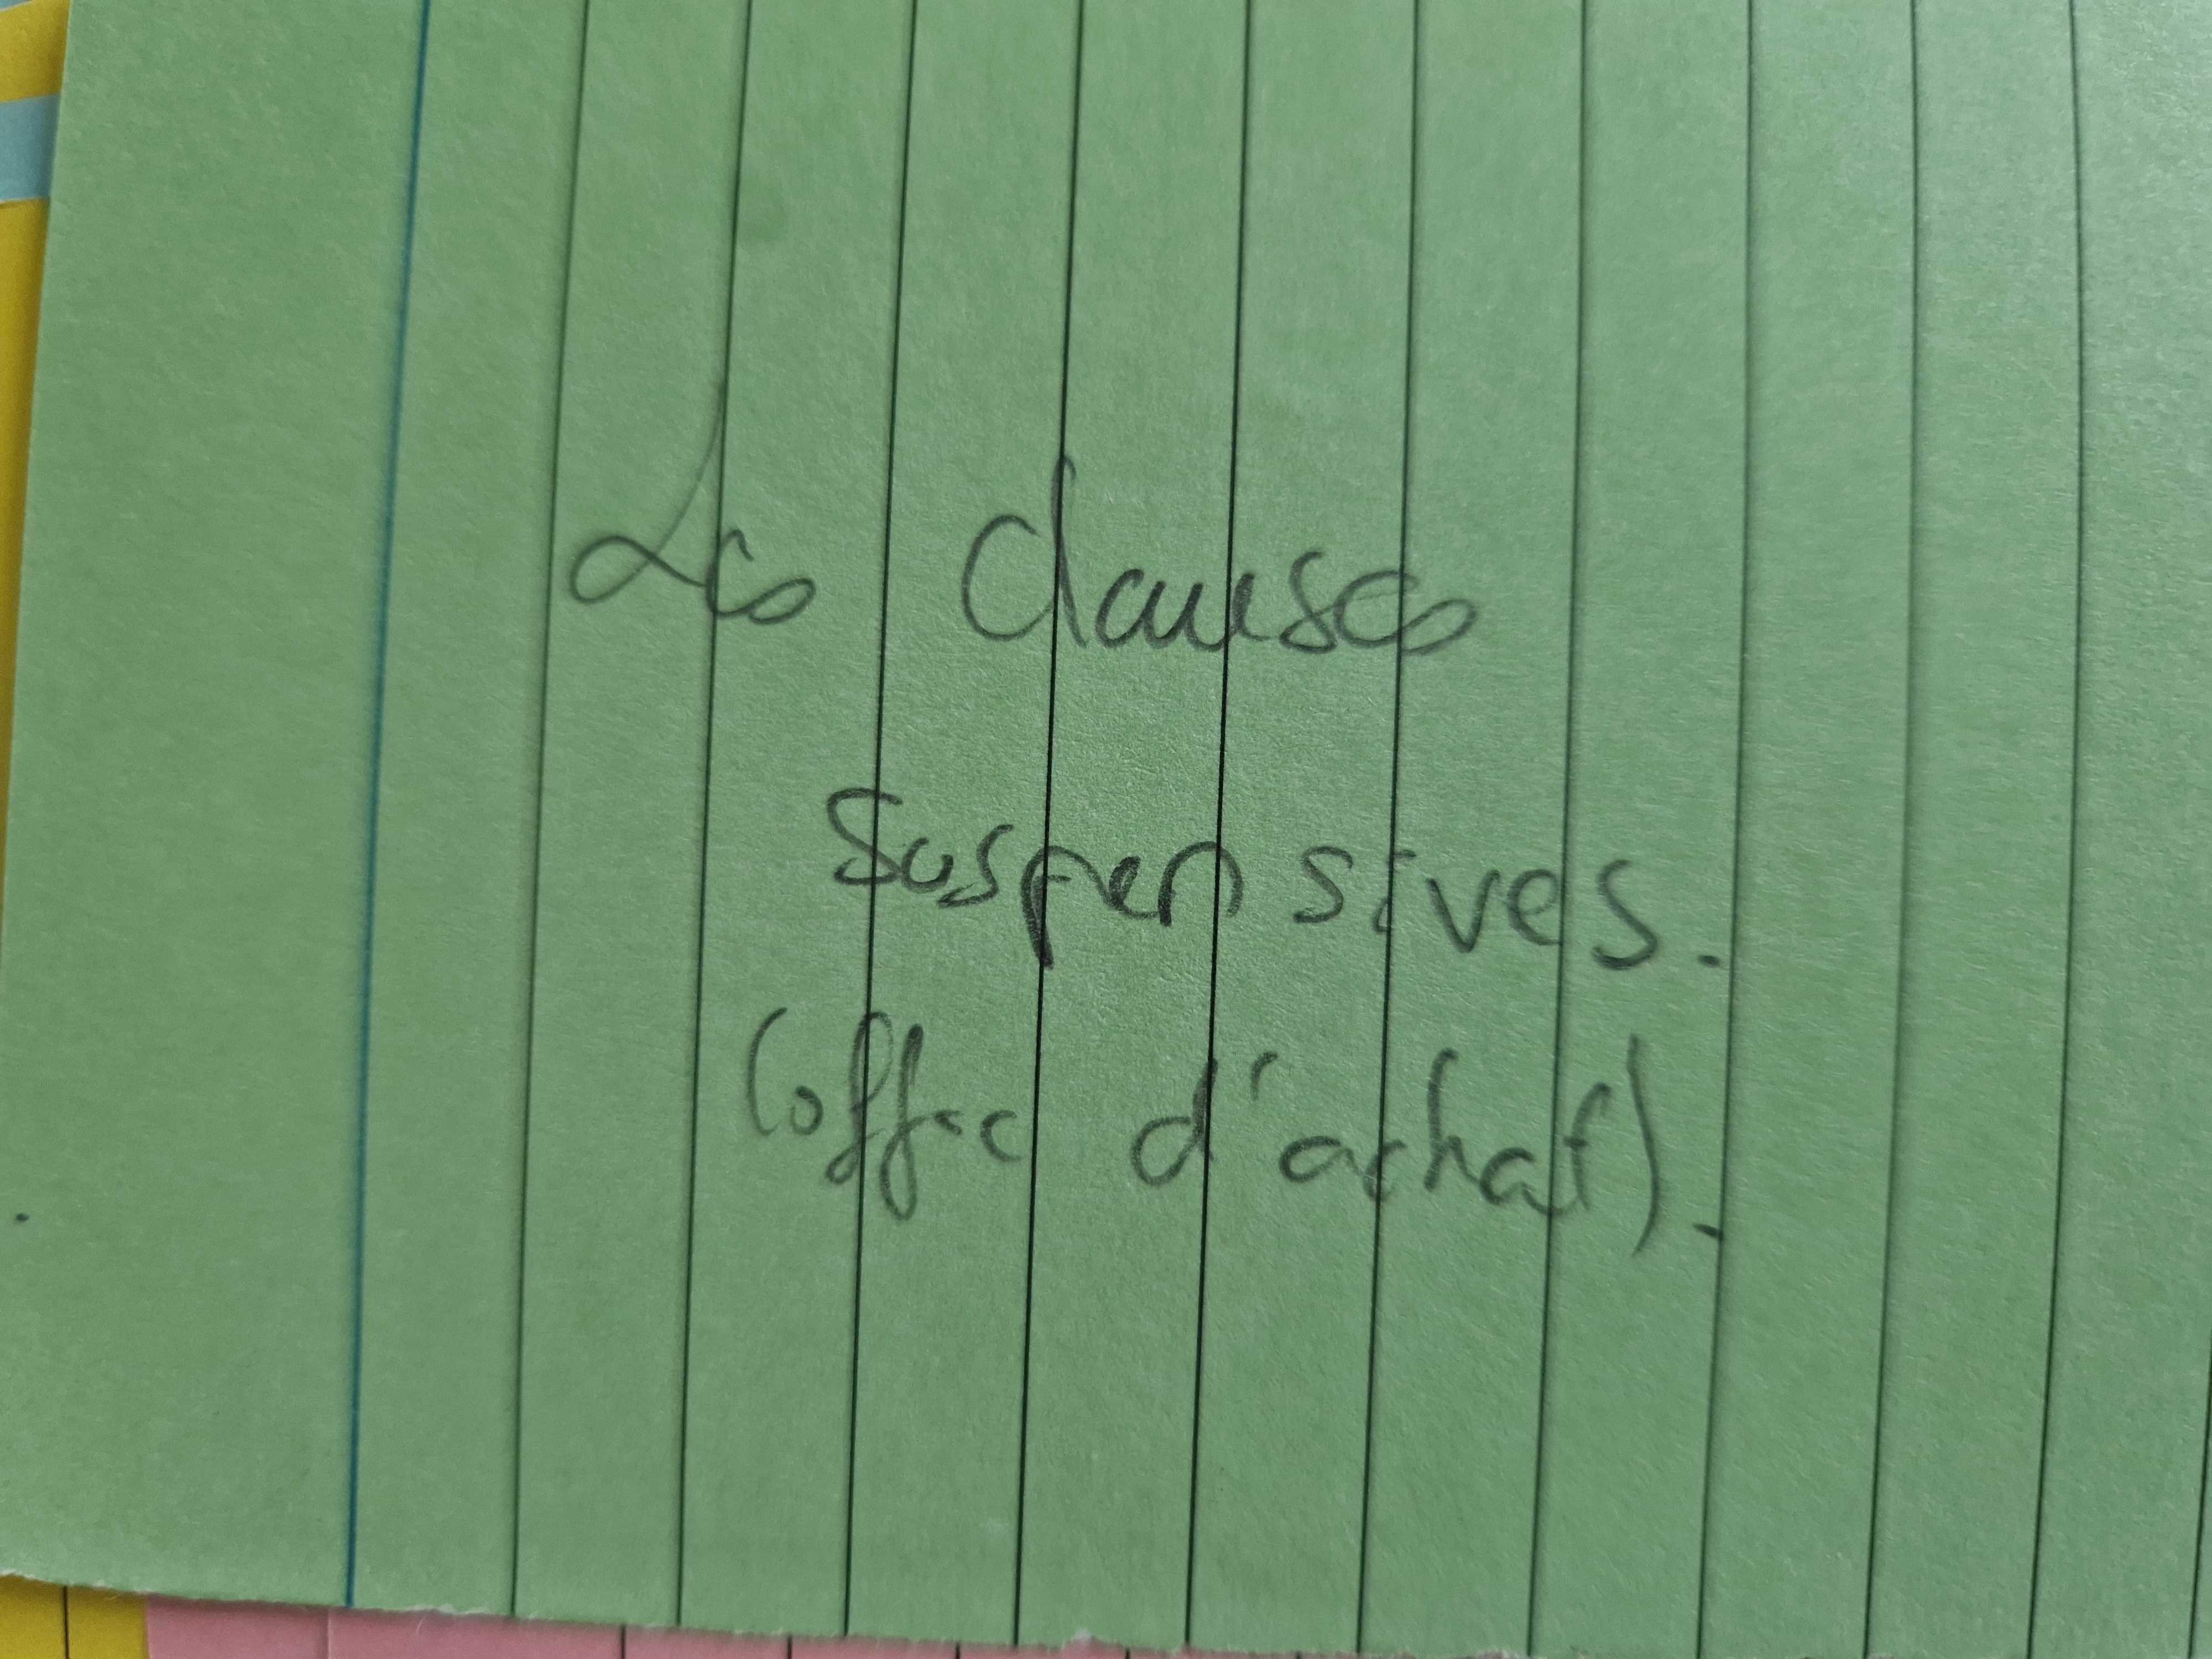 Les Clauses
Suspensives.
(offre d'achat).